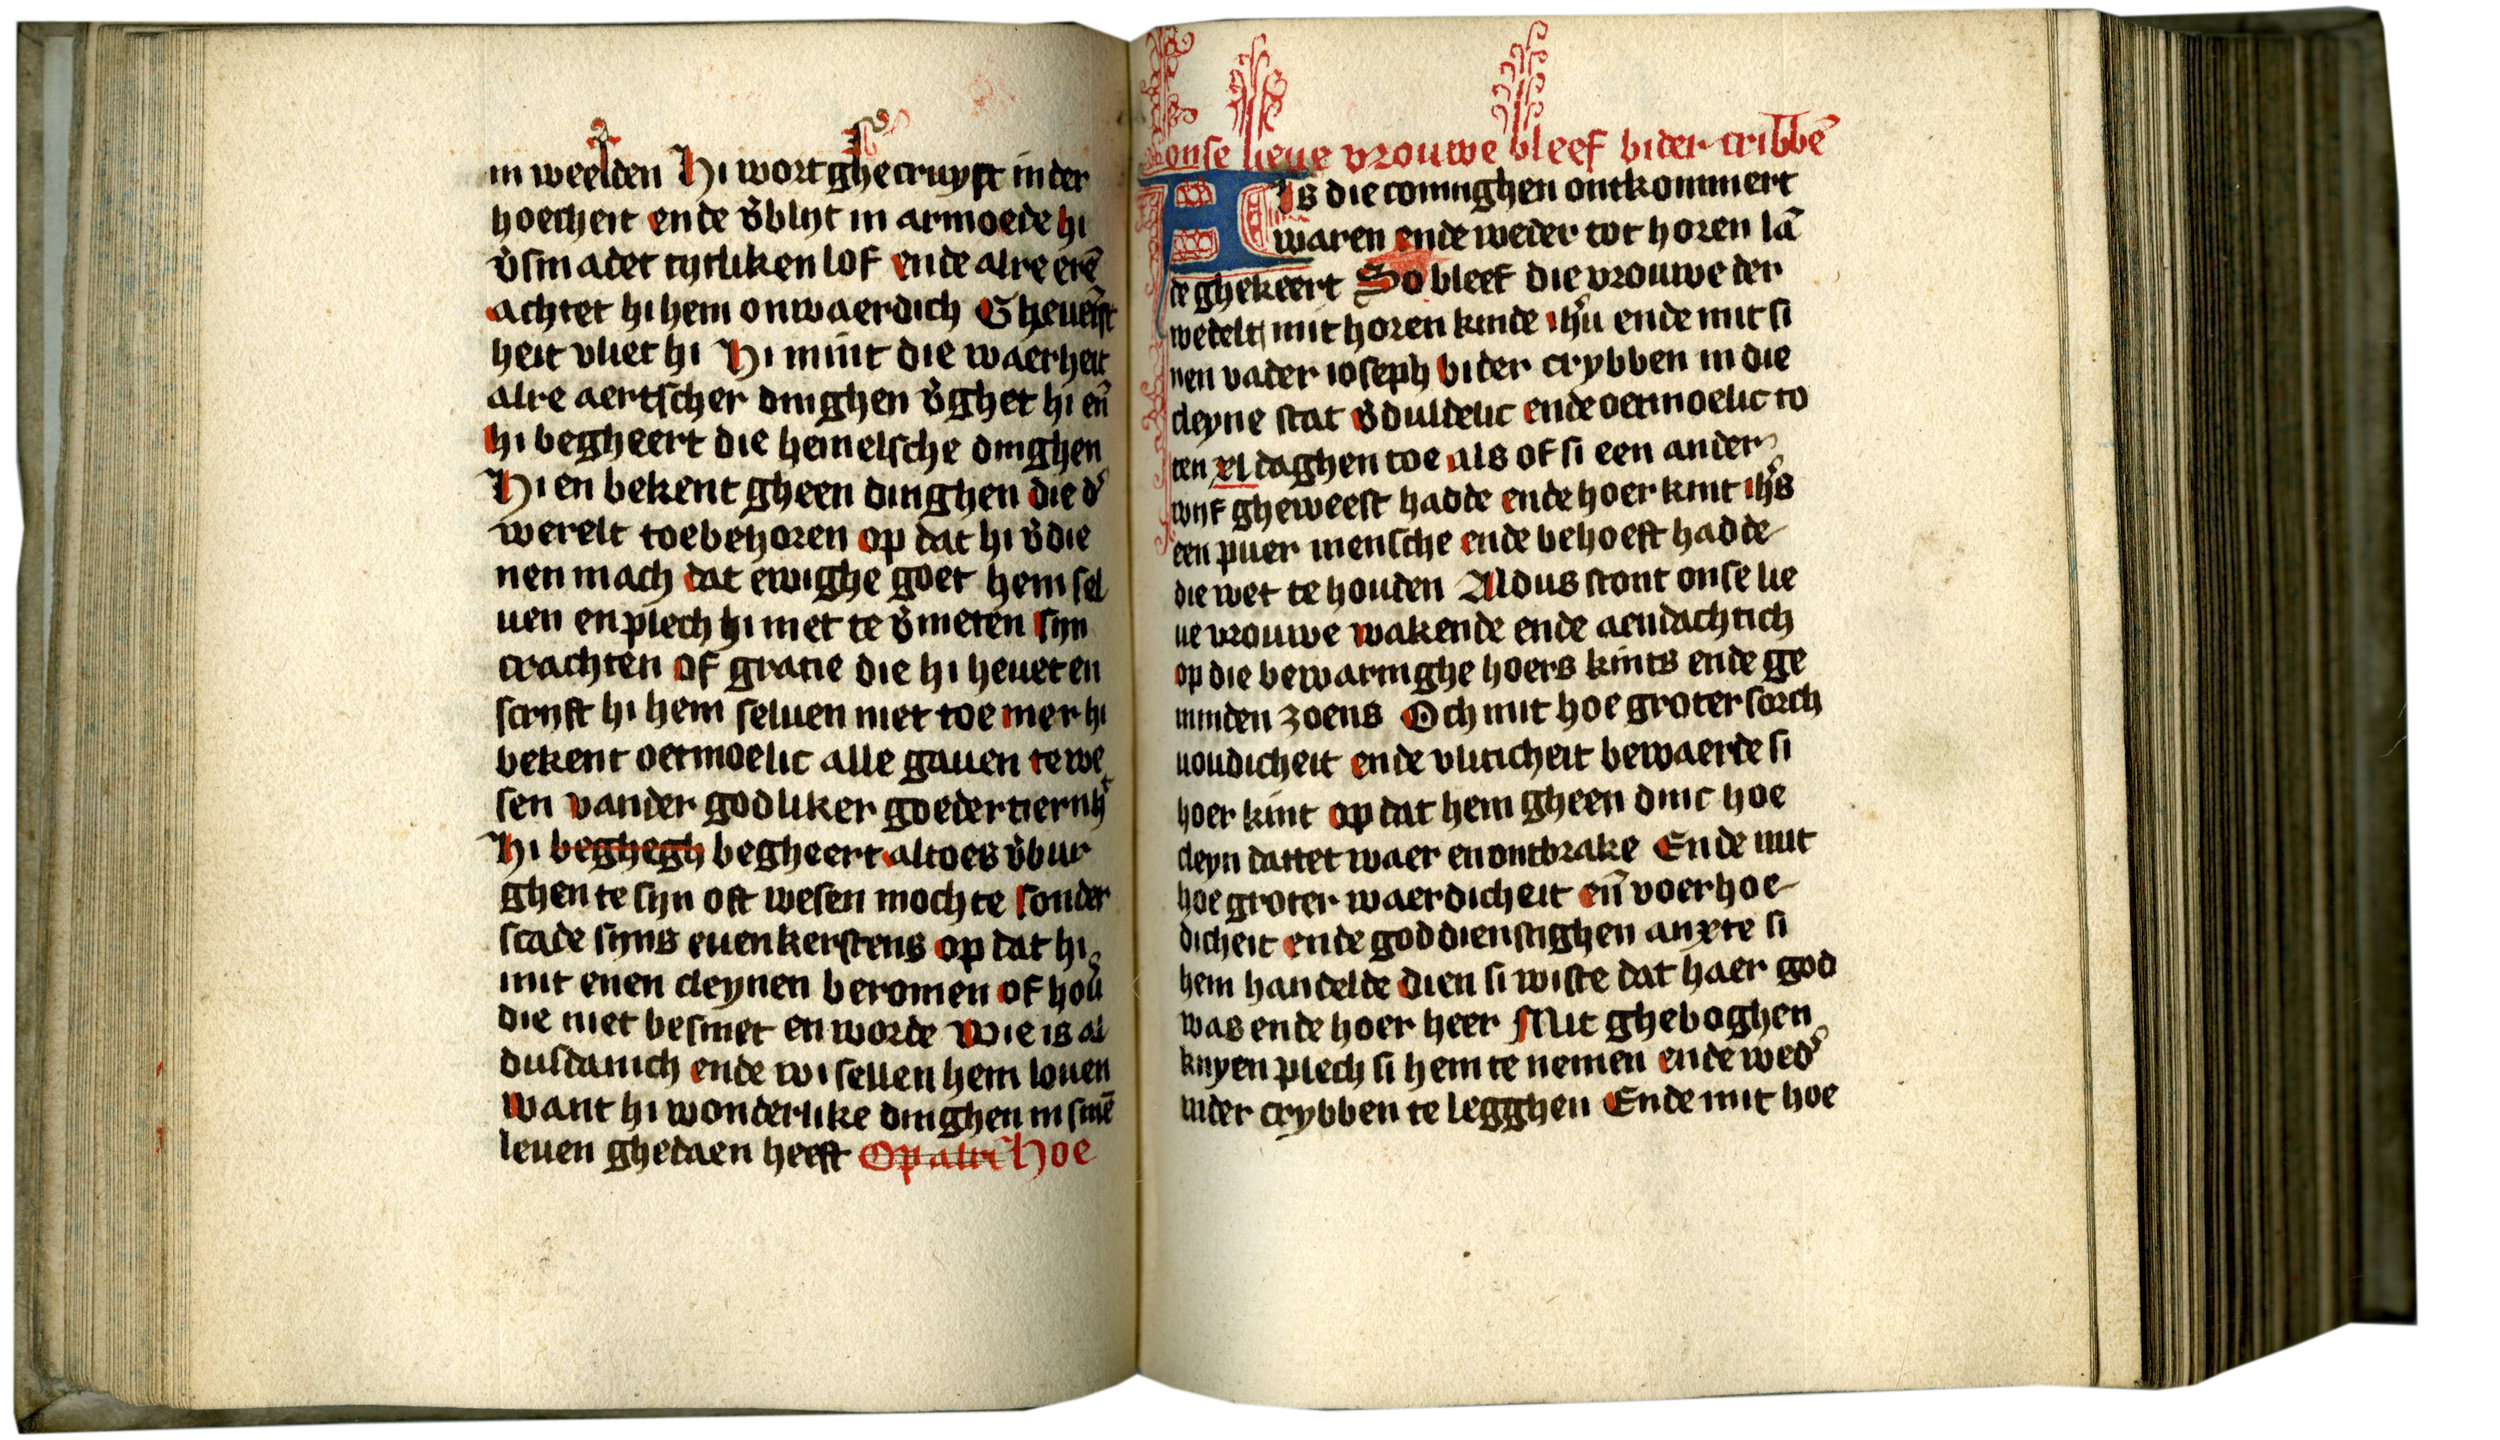 in weelden Hi wort ghecruyst in der
hoecheit ende v̉blijt in armoede hi
v̉smadet tijtliken lof ende alre erē
achtet hi hem onwaerdich Gheueīst
heit vliet hi Hi mint die waerheit
alre aertscher dinghen v̉ghet hi en̄
hi begheert die hemelsche dinghen
Hi en bekent gheen dinghen die d̉
werelt toebehoren op dat hi v̉die
nen mach dat ewighe goet hem sel
uen en plech hi niet te v̉meten sijn
crachten of gratie die hi heuet en
scrijft hi hem seluen niet toe mer hi
bekent oetmoelic alle gauen te we
sen vander godliker goedertiernh̾
Hi beghegh begheert altoes v̉bur
ghen te sijn oft wesen mochte sonder
scade sijns euenkerstens op dat hi
mit enen cleynen beromen of hou̾
die niet besmet en worde Wie is al
dusdanich ende wi sellen hem louen
Want hi wonderlike dinghen in sinē
leuen ghedaen heeft Op alre Hoe
onse lieue vrouwe bleef bider cribbē
Als die coninghen ontkommert
waren ende weder tot horen lā
de ghekeert So bleef die vrouwe der
werelt mit horen kinde ih̾u ende mit si
nen vader ioseph bider crybben in die
cleyne stat v̉duldelic ende oetmoelic to
ten xl daghen toe als of si een ander
wijf gheweest hadde ende hoer kint ih̾s
een puer mensche ende behoeft hadde
die wet te houden Aldus stont onse lie
ue vrouwe wakende ende aendachtich
op die bewaringhe hoers kints ende ge
minden zoens Och mit hoe groter sorch
uoudicheit ende vliticheit bewaerde si
hoer kint op dat hem gheen dinc hoe
cleyn dattet waer en ontbrake Ende mit
hoe groter waerdicheit en̄ voerhoe
dicheit ende goddienstighen anxte si
hem handelde dien si wiste dat haer god
was ende hoer heer Mit gheboghen
knyen plech si hem te nemen ende wed̉
inder crybben te legghen Ende mit hoe